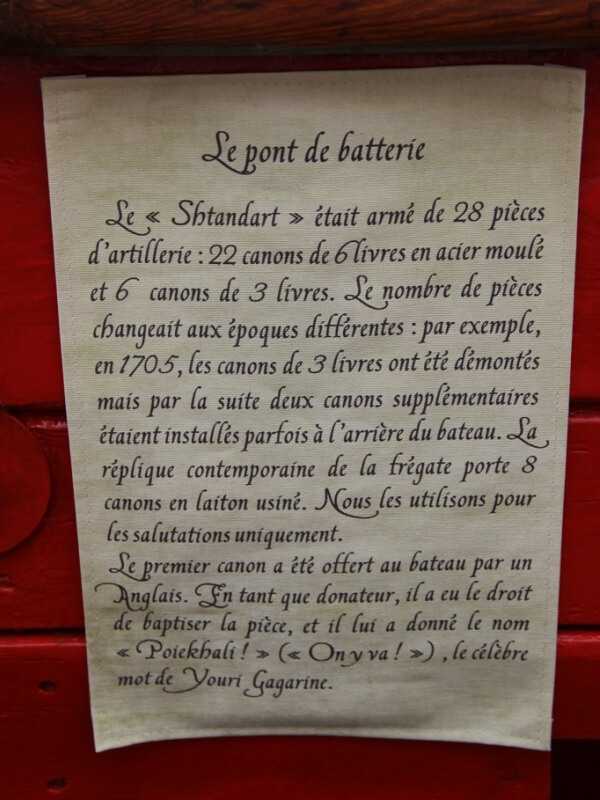 Le pont de batterie
Le « Shtandart » était armé de 28 pièces
d'artillerie : 22 canons de 6 livres en acier moulé
et 6 canons de 3 livres. Le nombre de pièces
changeait aux époques différentes : par exemple,
en 1705, les canons de 3 livres ont été démontés
mais par la suite deux canons supplémentaires
étaient installés parfois à l'arrière du bateau. La
réplique contemporaine de la frégate porte 8
canons en laiton usiné. Nous les utilisons pour
les salutations uniquement.
Le premier canon a été offert au bateau par un
Anglais. En tant que donateur, il a eu le droit
de baptiser la pièce, et il lui a donné le nom
« Poiekhali ! » (« On y va ! ») , le célèbre
mot de Youri Gagarine.